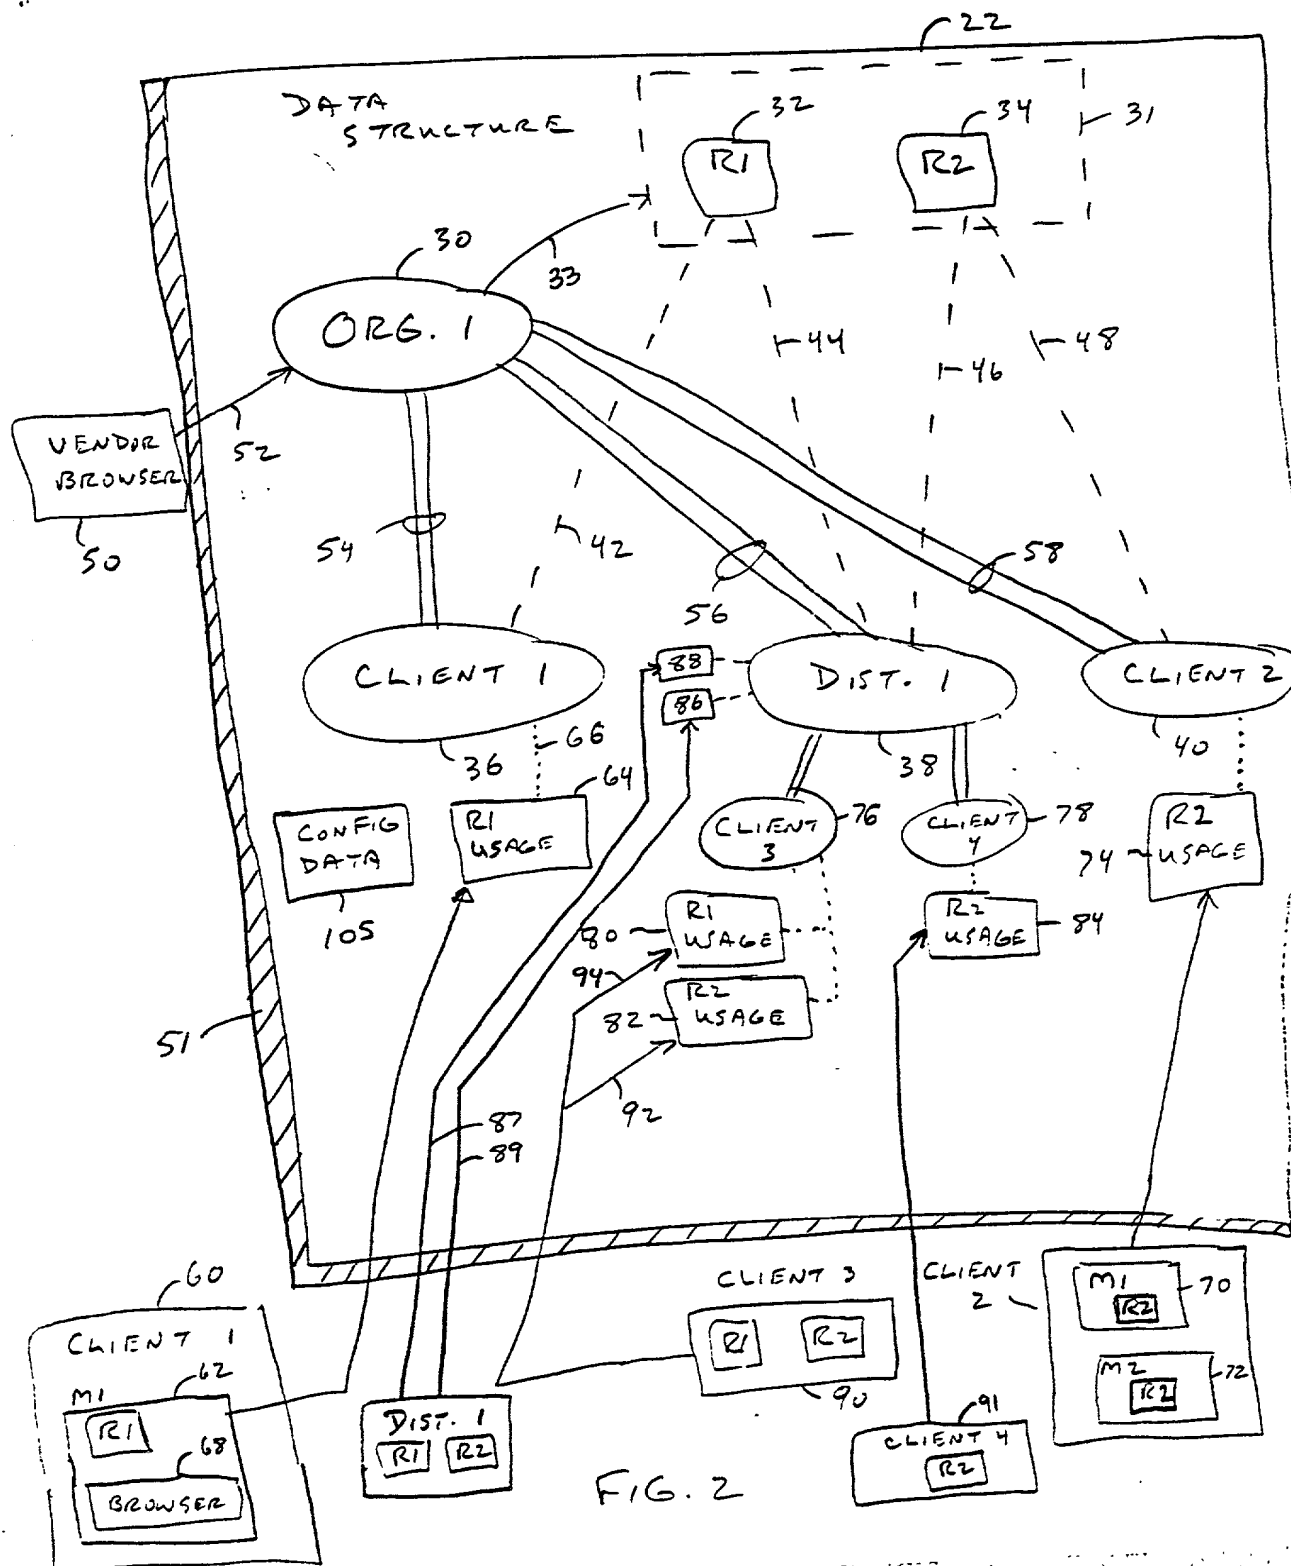 22
DATA
STRUCTURE
32
34
31
R1
R2
30
33
ORG. 1
44
46
48
VENDOR
BROWSER
52
50
54
42
56
58
CLIENT 1
88
86
DIST. 1
CLIENT 2
36
66
64
38
40
CONFIG
DATA
105
R1
USAGE
CLIENT
3
76
CLIENT
4
78
R2
USAGE
74
80
R1
USAGE
R2
USAGE
84
94
82
R2
USAGE
51
92
87
89
60
CLIENT 1
M1
62
R1
68
BROWSER
DIST. 1
R1
R2
CLIENT 3
R1
R2
90
CLIENT
2
M1
R2
70
M2
R2
72
91
CLIENT 4
R2
FIG. 2